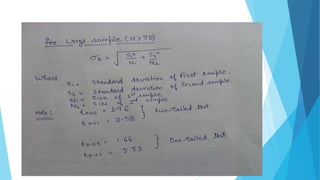 for Large sample (N>30)
σk = √ S1²/N1 + S2²/N2
Where
S1 = Standard deviation of first sample.
S2 = Standard deviation of Second sample.
N1 = Size of 1st sample.
N2 = Size of 2nd sample
Note: t0.05 = 1.96 } two-tailed test
t0.01 = 2.58
t0.05 = 1.66 } One-tailed test
t0.01 = 2.33